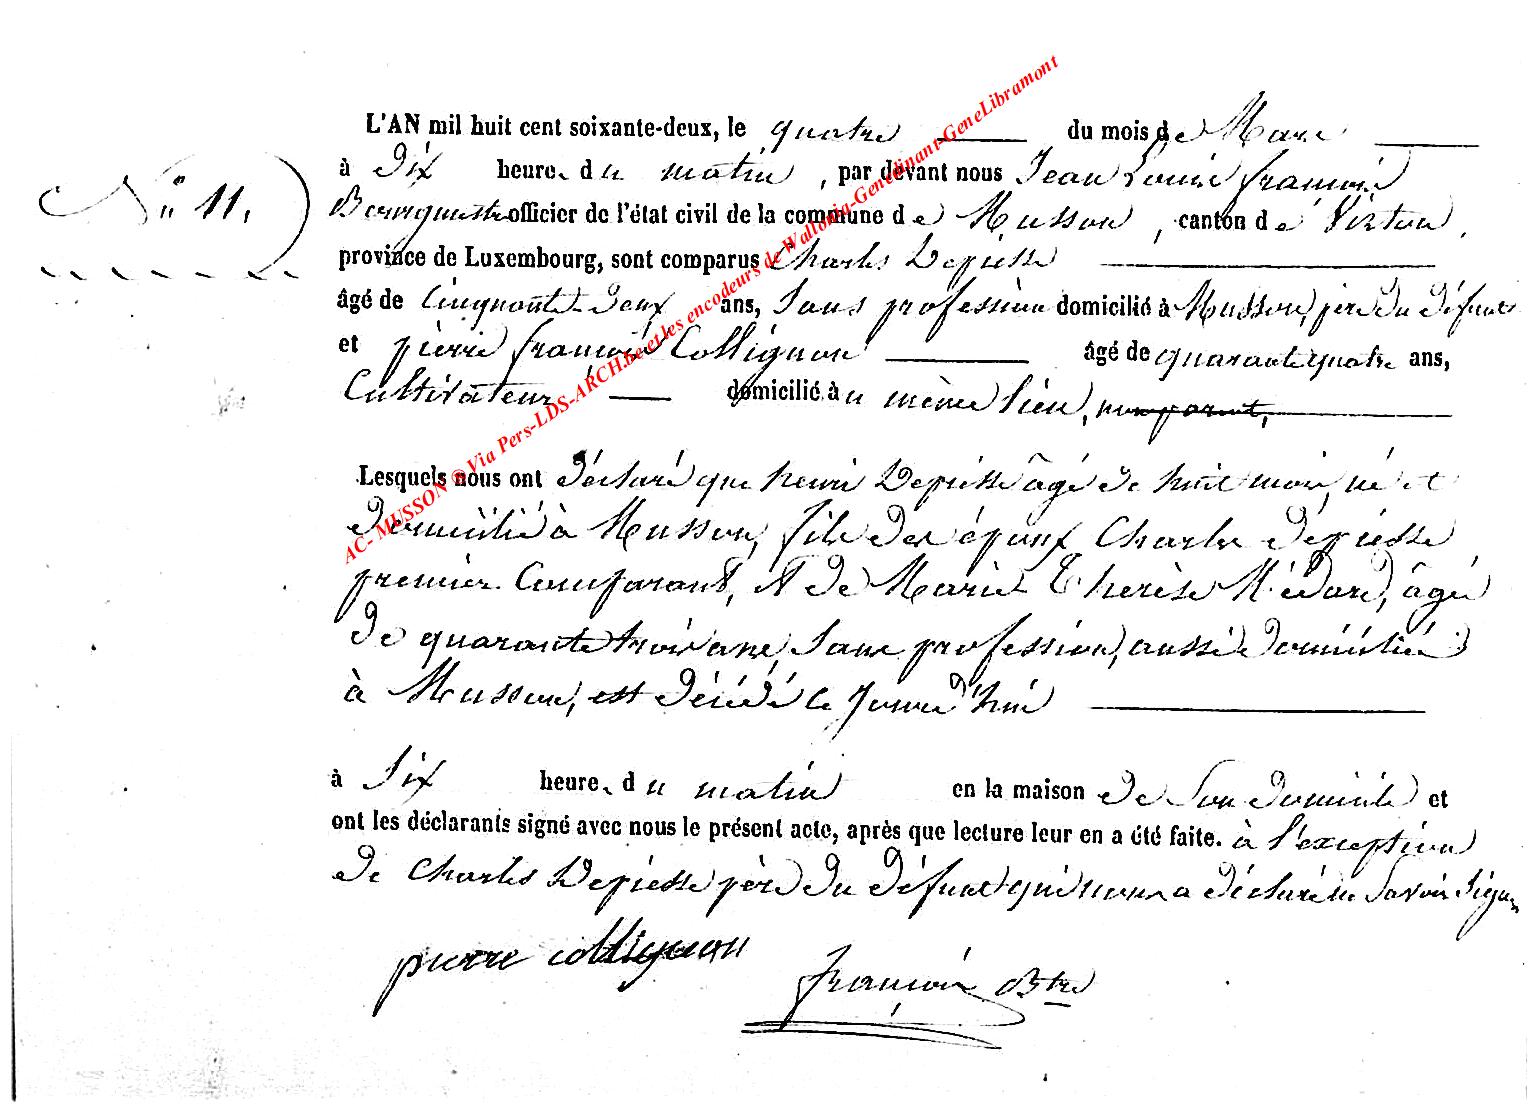 L'AN mil huit cent soixante-deux, le quatre du mois de Mars
N° 11.
à Dix heure. du matin, par devant nous Jean Louis françois
Bourgmestre officier de l'état civil de la commune de Musson, canton de Virton,
province de Luxembourg, sont comparus Charles Depiesse
âgé de Cinquante-deux ans, Sans profession domicilié à Musson, père du défunt
et pierre françois Collignon âgé de quarante quatre ans,
Cultivateur domicilié au même lieu, non parent,
Lesquels nous ont déclaré que henri Depiesse âgé de huit mois, né et
domicilié à Musson, fils des époux Charles Depiesse
premier Comparant, et de Marie Thérèse Médard, âgée
de quarante trois ans, Sans profession, aussi domiciliée
à Musson, est décédé ce Jourd'hui
à Six heure. du matin en la maison de Son domicile et
ont les déclarants signé avec nous le présent acte, après que lecture leur en a été faite. à l'exception
de Charles Depiesse père du défunt qui nous a déclaré ne Savoir Signer
pierre collignon
françois Btre
AC- MUSSON © Via Pers-LDS-ARCH.be et les encodeurs de Wallonia-Genedinant-GeneLibramont